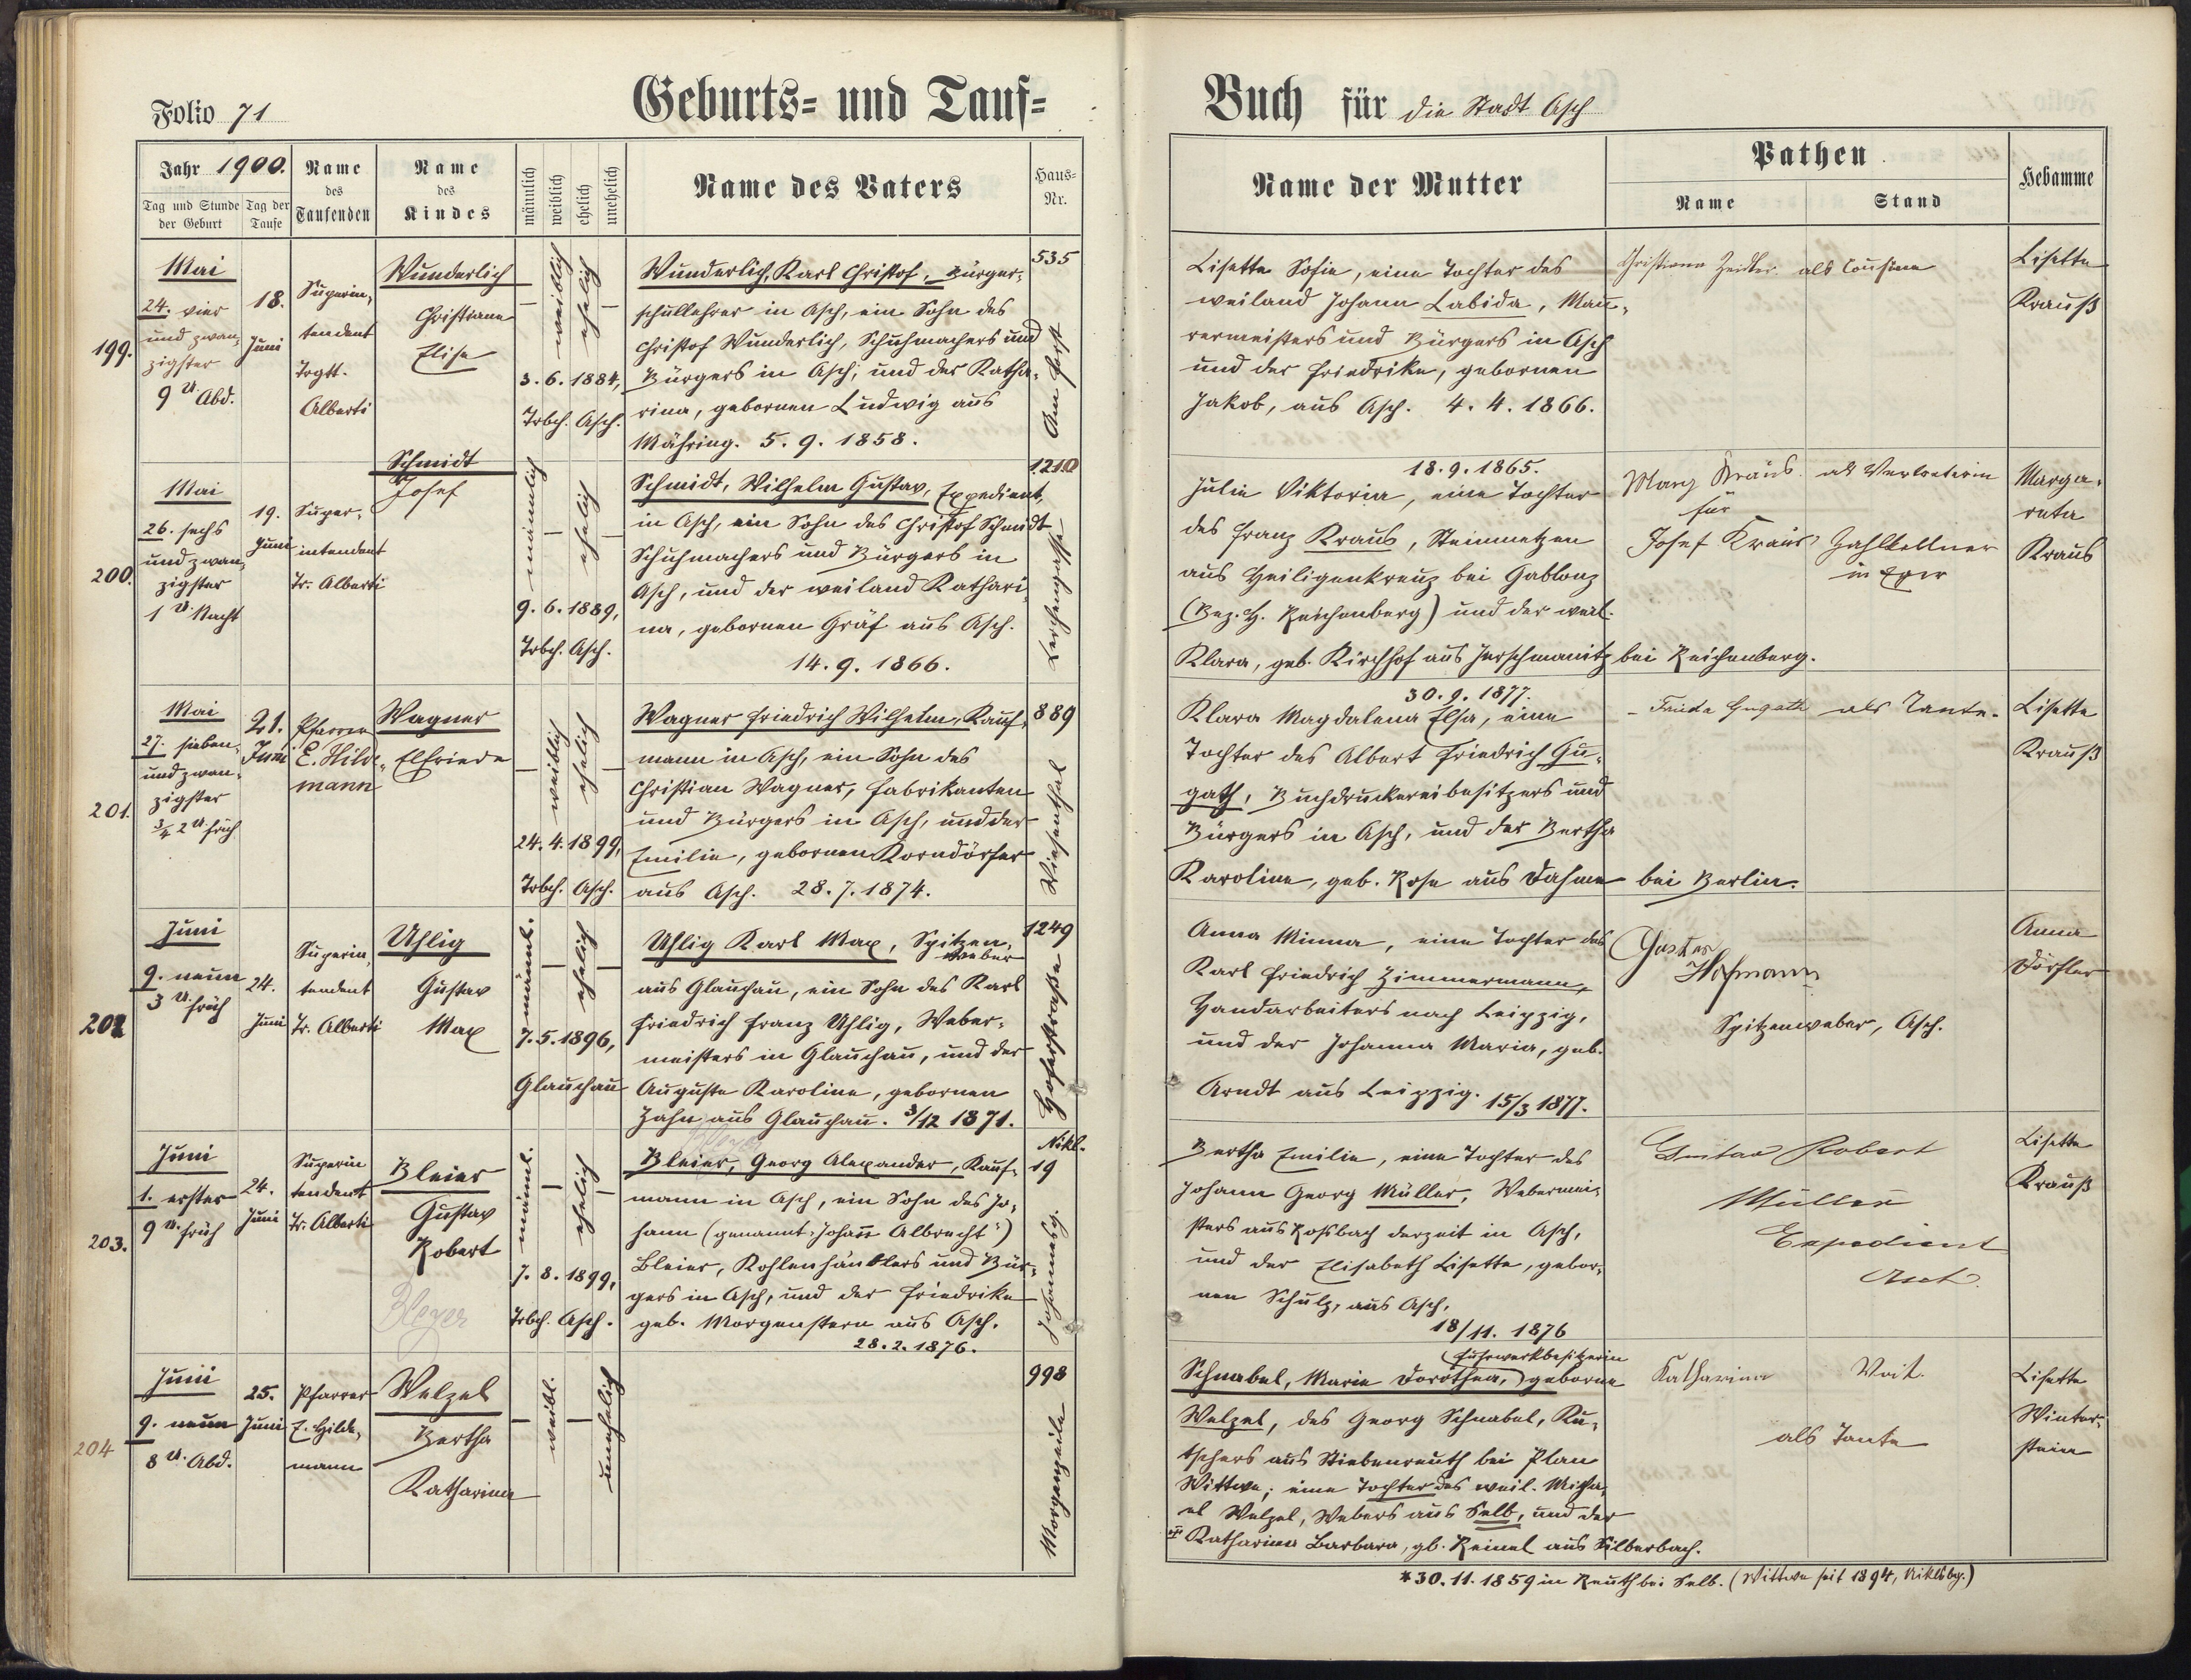 Folio 71
Geburts- und Tauf-
Jahr 1900.
Tag und Stunde der Geburt
Tag der Taufe
Name des Taufenden
Name des Kindes
männlich
weiblich
ehelich
unehelich
Name des Vaters
Haus-Nr.
199.
Mai
24. vier
und zwan-
zigster
9 U. Abd.
18.
Juni
Superin-
tendent
Alberti
Wunderlich
Christiane
Elise
weiblich
ehelich
3. 6. 1884,
Trbch. Asch.
Wunderlich, Karl Christof, Bürger-
schullehrer in Asch, ein Sohn des
Christof Wunderlich, Schuhmachers und
Bürgers in Asch, und der Katha-
rina, gebornen Ludwig aus
Mähring. 5. 9. 1858.
535
Am Forst
200.
Mai
26. sechs
und zwan-
zigster
1 U. Nacht
19.
Juni
Super-
intendent
Tr. Alberti
Schmidt
Josef
männlich
ehelich
9. 6. 1889,
Trbch. Asch.
Schmidt, Wilhelm Gustav, Expedient,
in Asch, ein Sohn des Christof Schmidt
Schuhmachers und Bürgers in
Asch, und der weiland Kathari-
na, gebornen Gräf aus Asch.
14. 9. 1866.
1210
Lerchengasse
201.
Mai
27. sieben-
und zwan-
zigster
3/4 2 U. früh
21.
Juni
Pfarrer
E. Hilde-
mann
Wagner
Elfriede
weiblich
ehelich
24. 4. 1899,
Trbch. Asch.
Wagner Friedrich Wilhelm, Kauf-
mann in Asch, ein Sohn des
Christian Wagner, Fabrikanten
und Bürgers in Asch, und der
Emilie, gebornen Korndörfer
aus Asch. 28. 7. 1874.
889
Wiesenthal
202
Juni
9. neun
3 U. früh
24.
Juni
Superin-
tendent
Tr. Alberti
Uhlig
Gustav
Max
männl.
ehelich
7. 5. 1896,
Glauchau
Uhlig Karl Max, Spitzen-
weber
aus Glauchau, ein Sohn des Karl
Friedrich Franz Uhlig, Weber-
meisters in Glauchau, und der
Auguste Karoline, gebornen
Zahn aus Glauchau. 3/12 1871.
1249
Hoferstraße
203.
Juni
1. erster
9 U. früh
24.
Juni
Superin
tendent
Tr. Alberti
Bleier
Gustav
Robert
Bleyer
männl.
ehelich
7. 8. 1899,
Trbch. Asch.
Bleyer
Bleier, Georg Alexander, Kauf-
mann in Asch, ein Sohn des Jo-
hann (genannt „Johann Albrecht“)
Bleier, Kohlenhändlers und Bür-
gers in Asch, und der Friedrike
geb. Morgenstern aus Asch.
28. 2. 1876.
Nikl.
19
Johannesg.
204
Juni
9. neun
8 U. Abd.
25.
Juni
Pfarrer
E. Hilde-
mann
Welzel
Bertha
Katharina
weibl.
unehelich
998
Morgenzeile
Buch für die Stadt Asch
Name der Mutter
Pathen
Name
Stand
Hebamme
Lisette Sofie, eine Tochter des
weiland Johann Labida, Mau-
rermeisters und Bürgers in Asch
und der Friedrike, gebornen
Jakob, aus Asch. 4. 4. 1866.
Christiane Zeidler als Cousine
Lisette
Krauß
18. 9. 1865.
Julie Viktoria, eine Tochter
des Franz Kraus, Steinmetzen
aus Heiligenkreuz bei Gablonz
(Bez. H. Reichenberg) und der weil.
Klara, geb. Kirchhof aus Jerschmanitz bei Reichenberg.
Marg Kraus als Vertreterin
für
Josef Kraus Zahlkellner
in Eger
Marga-
reta
Kraus
30. 9. 1877.
Klara Magdalena Elsa, eine
Tochter des Albert Friedrich Gu-
gath, Buchdruckereibesitzers und
Bürgers in Asch, und der Bertha
Karoline, geb. Rose aus Dahme bei Berlin.
Frieda Gugath als Tante.
Lisette
Krauß
Anna Minna, eine Tochter des
Karl Friedrich Zimmermann,
Handarbeiters nach Leipzig,
und der Johanna Maria, geb.
Arndt aus Leipzig. 15/3 1877.
Gustav
Hofmann
Spitzenweber, Asch.
Anna
Dörfler
Bertha Emilie, eine Tochter des
Johann Georg Müller, Webermei-
sters aus Roßbach derzeit in Asch,
und der Elisabeth Lisette, gebor-
nen Schulz, aus Asch.
18/11. 1876
Gustav Robert
Müller
Expedient
Asch
Lisette
Krauß
(Fuhrwerkbesitzerin)
Schnabel, Marie Dorothea, geborne
Welzel, des Georg Schnabel, Ku-
tschers aus Stiebenreuth bei Plan
Wittwe; eine Tochter des weil. Micha-
el Welzel, Webers aus Selb, und der
Katharina Barbara, gb. Reinel aus Silberbach.
* 30. 11. 1859 in Reuth bei Selb. (Wittwe seit 1894, Niklbg.)
Katharina Veit.
als Tante
Lisette
Winter-
stein